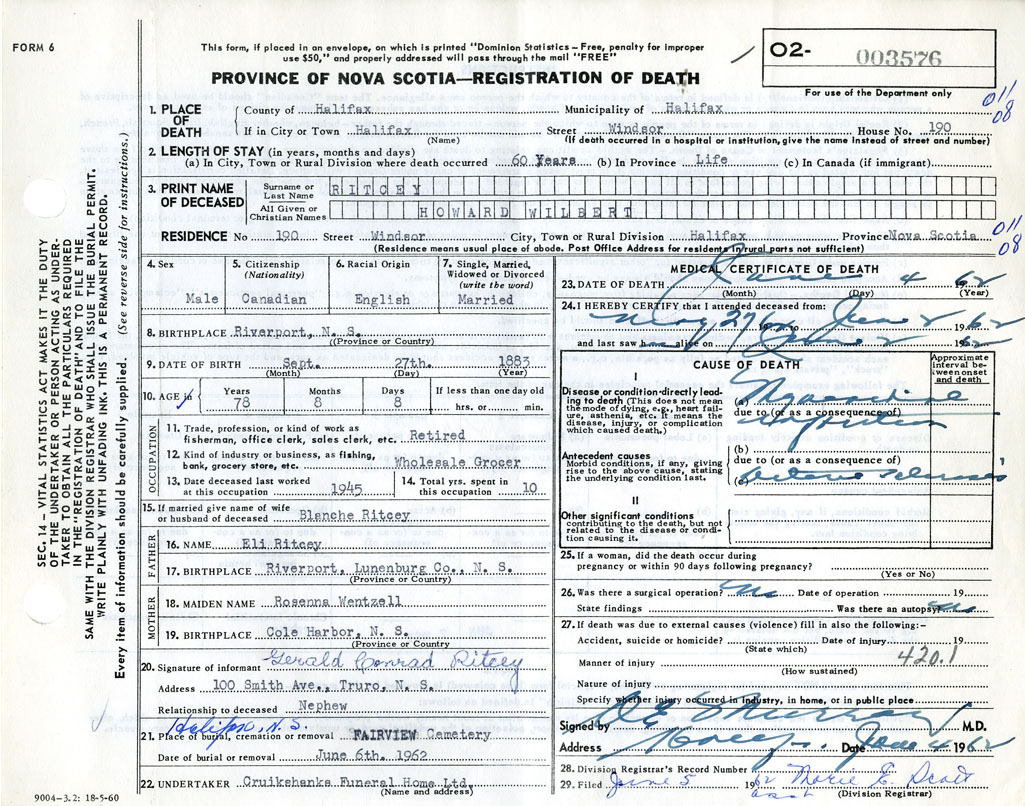 FORM 6
This form, if placed in an envelope, on which is printed "Dominion Statistics – Free, penalty for improper
use $50," and properly addressed will pass through the mail "FREE"
PROVINCE OF NOVA SCOTIA—REGISTRATION OF DEATH
O2- 003576
For use of the Department only
011
08
1. PLACE OF DEATH
County of Halifax Municipality of Halifax
If in City or Town Halifax Street Windsor House No. 190
(Name) (If death occurred in a hospital or institution, give the name instead of street and number)
2. LENGTH OF STAY (in years, months and days)
(a) In City, Town or Rural Division where death occurred 60 Years (b) In Province Life (c) In Canada (if immigrant)
3. PRINT NAME OF DECEASED
Surname or Last Name RITCEY
All Given or Christian Names HOWARD WILBERT
011
08
RESIDENCE No 190 Street Windsor City, Town or Rural Division Halifax Province Nova Scotia
(Residence means usual place of abode. Post Office Address for residents in rural parts not sufficient)
4. Sex Male
5. Citizenship (Nationality) Canadian
6. Racial Origin English
7. Single, Married, Widowed or Divorced (write the word) Married
8. BIRTHPLACE Riverport, N. S.
(Province or Country)
9. DATE OF BIRTH Sept. 27th. 1883
(Month) (Day) (Year)
10. AGE in Years 78 Months 8 Days 8 If less than one day old hrs. or min.
OCCUPATION
11. Trade, profession, or kind of work as
fisherman, office clerk, sales clerk, etc. Retired
12. Kind of industry or business, as fishing,
bank, grocery store, etc. Wholesale Grocer
13. Date deceased last worked
at this occupation 1945
14. Total yrs. spent in
this occupation 10
15. If married give name of wife
or husband of deceased Blanche Ritcey
FATHER
16. NAME Eli Ritcey
17. BIRTHPLACE Riverport, Lunenburg Co., N. S.
(Province or Country)
MOTHER
18. MAIDEN NAME Rosenna Wentzell
19. BIRTHPLACE Cole Harbor, N. S.
(Province or Country)
20. Signature of informant Gerald Conrad Ritcey
Address 100 Smith Ave., Truro, N. S.
Relationship to deceased Nephew
Halifax, N. S.
21. Place of burial, cremation or removal FAIRVIEW Cemetery
Date of burial or removal June 6th. 1962
22. UNDERTAKER Cruikshanks Funeral Home Ltd.
(Name and address)
MEDICAL CERTIFICATE OF DEATH
23. DATE OF DEATH June 4 1962
(Month) (Day) (Year)
24. I HEREBY CERTIFY that I attended deceased from:
May 27 62 to June 2 1962
and last saw h alive on June 2 1962
CAUSE OF DEATH
Approximate interval between onset and death
I
Disease or condition directly leading to death (This does not mean the mode of dying, e.g., heart failure, asthenia, etc. It means the disease, injury, or complication which caused death.)
(a) Myocardial
due to (or as a consequence of)
infarction
Antecedent causes
Morbid conditions, if any, giving rise to the above cause, stating the underlying condition last.
(b)
due to (or as a consequence of)
(c)
II
Other significant conditions
contributing to the death, but not related to the disease or condition causing it.
25. If a woman, did the death occur during
pregnancy or within 90 days following pregnancy?
(Yes or No)
26. Was there a surgical operation? No Date of operation 19
State findings Was there an autopsy? No
27. If death was due to external causes (violence) fill in also the following:–
Accident, suicide or homicide? Date of injury 19
(State which)
Manner of injury 420.1
(How sustained)
Nature of injury
Specify whether injury occurred in industry, in home, or in public place
Signed by M.D.
Address Date June 4 1962
28. Division Registrar's Record Number
29. Filed June 5 1962 Marie E.
(Division Registrar)
SEC. 14 – VITAL STATISTICS ACT MAKES IT THE DUTY
OF THE UNDERTAKER OR PERSON ACTING AS UNDER-
TAKER TO OBTAIN ALL THE PARTICULARS REQUIRED
IN THE "REGISTRATION OF DEATH" AND TO FILE THE
SAME WITH THE DIVISION REGISTRAR WHO SHALL ISSUE THE BURIAL PERMIT.
WRITE PLAINLY WITH UNFADING INK. THIS IS A PERMANENT RECORD.
Every item of information should be carefully supplied. (See reverse side for instructions.)
9004-3.2: 18-5-60